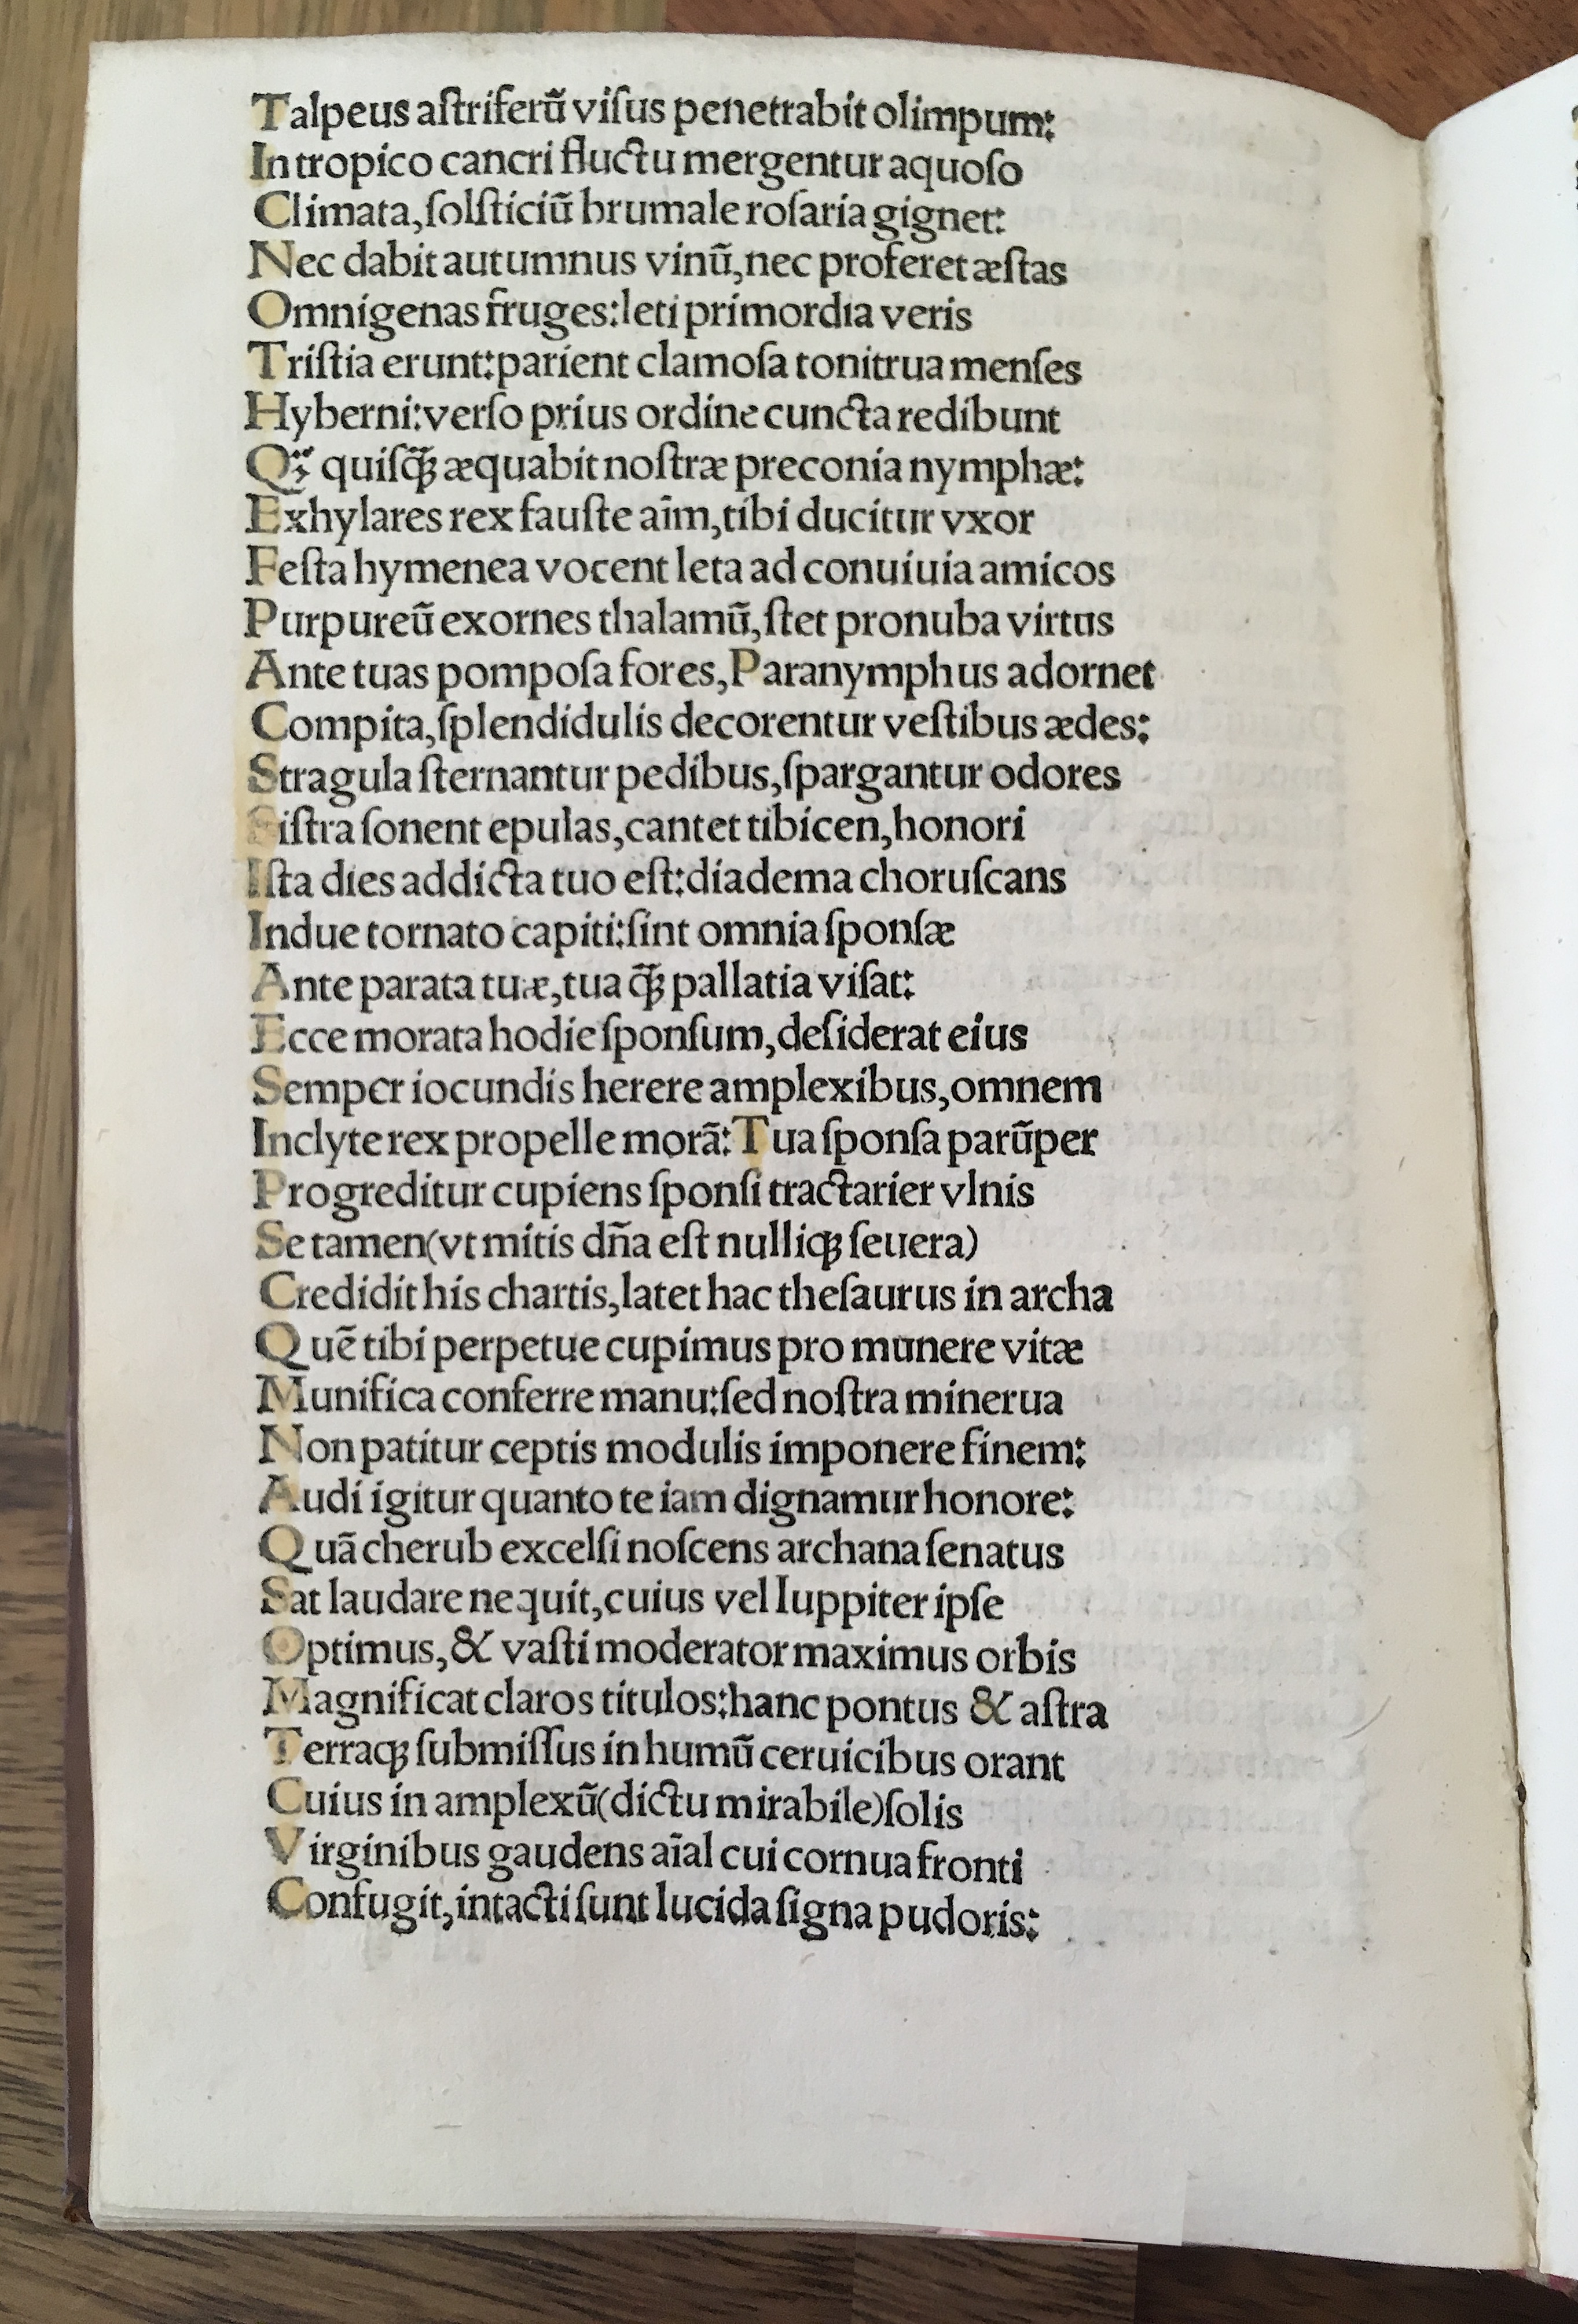 Talpeus aſtriferū viſus penetrabit olimpum:
In tropico cancri fluctu mergentur aquoſo
Climata,ſolſticiū brumale roſaria gignet:
Nec dabit autumnus vinū,nec proferet æſtas
Omnigenas fruges:leti primordia veris
Triſtia erunt:parient clamoſa tonitrua menſes
Hyberni:verſo prius ordine cuncta redibunt
quiſq̃ꝫ æquabit noſtræ preconia nymphæ:
Exhylares rex fauſte aīm,tibi ducitur vxor
Feſta hymenea vocent leta ad conuiuia amicos
Purpureū exornes thalamū,ſtet pronuba virtus
Ante tuas pompoſa fores,Paranymphus adornet
Compita,ſplendidulis decorentur veſtibus ædes:
Stragula ſternantur pedibus,ſpargantur odores
Siſtra ſonent epulas,cantet tibicen,honori
Iſta dies addicta tuo eſt:diadema choruſcans
Indue tornato capiti:ſint omnia ſponſæ
Ante parata tuæ,tua q̃ꝫ pallatia viſat:
Ecce morata hodie ſponſum,deſiderat eius
Semper iocundis herere amplexibus,omnem
Inclyte rex propelle morā:Tua ſponſa parūper
Progreditur cupiens ſponſi tractarier vlnis
Se tamen(vt mitis dn̄a eſt nulliqꝫ ſeuera)
Credidit his chartis,latet hac theſaurus in archa
Quē tibi perpetue cupimus pro munere vitæ
Munifica conferre manu:ſed noſtra minerua
Non patitur ceptis modulis imponere finem:
Audi igitur quanto te iam dignamur honore:
Quā cherub excelſi noſcens archana ſenatus
Sat laudare nequit,cuius vel Iuppiter ipſe
Optimus,& vaſti moderator maximus orbis
Magnificat claros titulos:hanc pontus & aſtra
Terraqꝫ ſubmiſſus in humū ceruicibus orant
Cuius in amplexū(dictu mirabile)ſolis
Virginibus gaudens aīal cui cornua fronti
Confugit,intacti ſunt lucida ſigna pudoris: